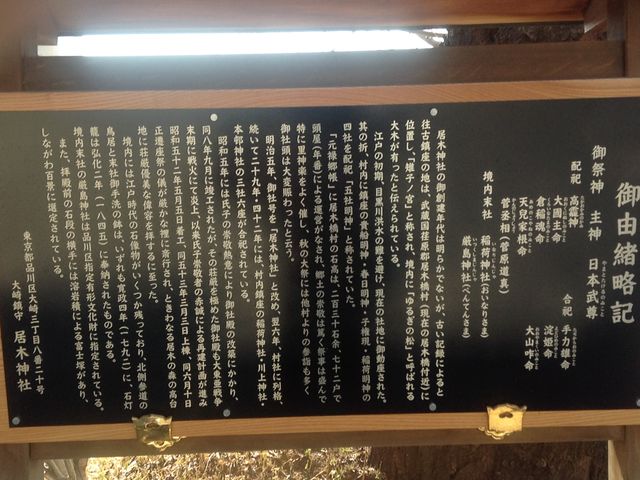 御由緒略記
御祭神 主神 日本武尊
やまとたけるのみこと
配祀 高龗神 合祀 手力雄命
大國主命 淀姫命
倉稲魂命 大山咋命
天兒屋根命
菅丞相(菅原道真)
境内末社 稲荷神社(おいなりさま)
厳島神社(べんてんさま)
居木神社の御創建年代は明らかでないが、古い記録によると
往古鎮座の地は、武蔵国荏原郡居木橋村(現在の居木橋付近)に
位置し、「雉子ノ宮」と称され、境内に「ゆるぎの松」と呼ばれる
大木が有ったと伝えられている。
江戸の初期、目黒川洪水の難を避け、現在の社地に御動座された。
其の折、村内に鎮座の貴船明神・春日明神・子権現・稲荷明神の
四社を配祀「五社明神」と称されていた。
「元禄郷帳」に居木橋村の石高は、二百三十石余、七十二戸で
頭屋(年番)による運営がなされ、郷土の崇敬は篤く祭事は盛んで
特に里神楽をよく催し、秋の大祭には他村よりの参詣も多く
御社頭は大変賑わったと云う。
明治五年、御社号を「居木神社」と改め、翌六年、村社に列格、
続いて二十九年・四十二年には、村内鎮座の稲荷神社・川上神社・
本邨神社の三社六座が合祀されている。
昭和五年には氏子の崇敬熱意により御社殿の改築にかかり、
同八年九月に竣工されたが、その荘厳を極めた御社殿も大東亜戦争
末期に戦火にて炎上、以来氏子崇敬者の赤誠による再建計画が進み
昭和五十二年五月五日着工、同五十三年三月三日上棟、同六月十日
正遷座祭の儀が厳かな裡に斎行され、ときわなる居木の森の高台
地に荘厳優美な偉容を拝するに至った。
境内には江戸時代の石造物がいくつか残っており、北側参道の
鳥居と末社御手洗の鉢は、いずれも寛政四年(一七九二)に、石灯
籠は弘化二年(一八四五)に奉納されたものである。
境内末社の厳島神社は品川区指定有形文化財に指定されている。
また、拝殿前の石段の横手には溶岩積による富士塚があり、
しながわ百景に選定されている。
東京都品川区大崎三丁目八番二十号
大崎鎮守 居木神社